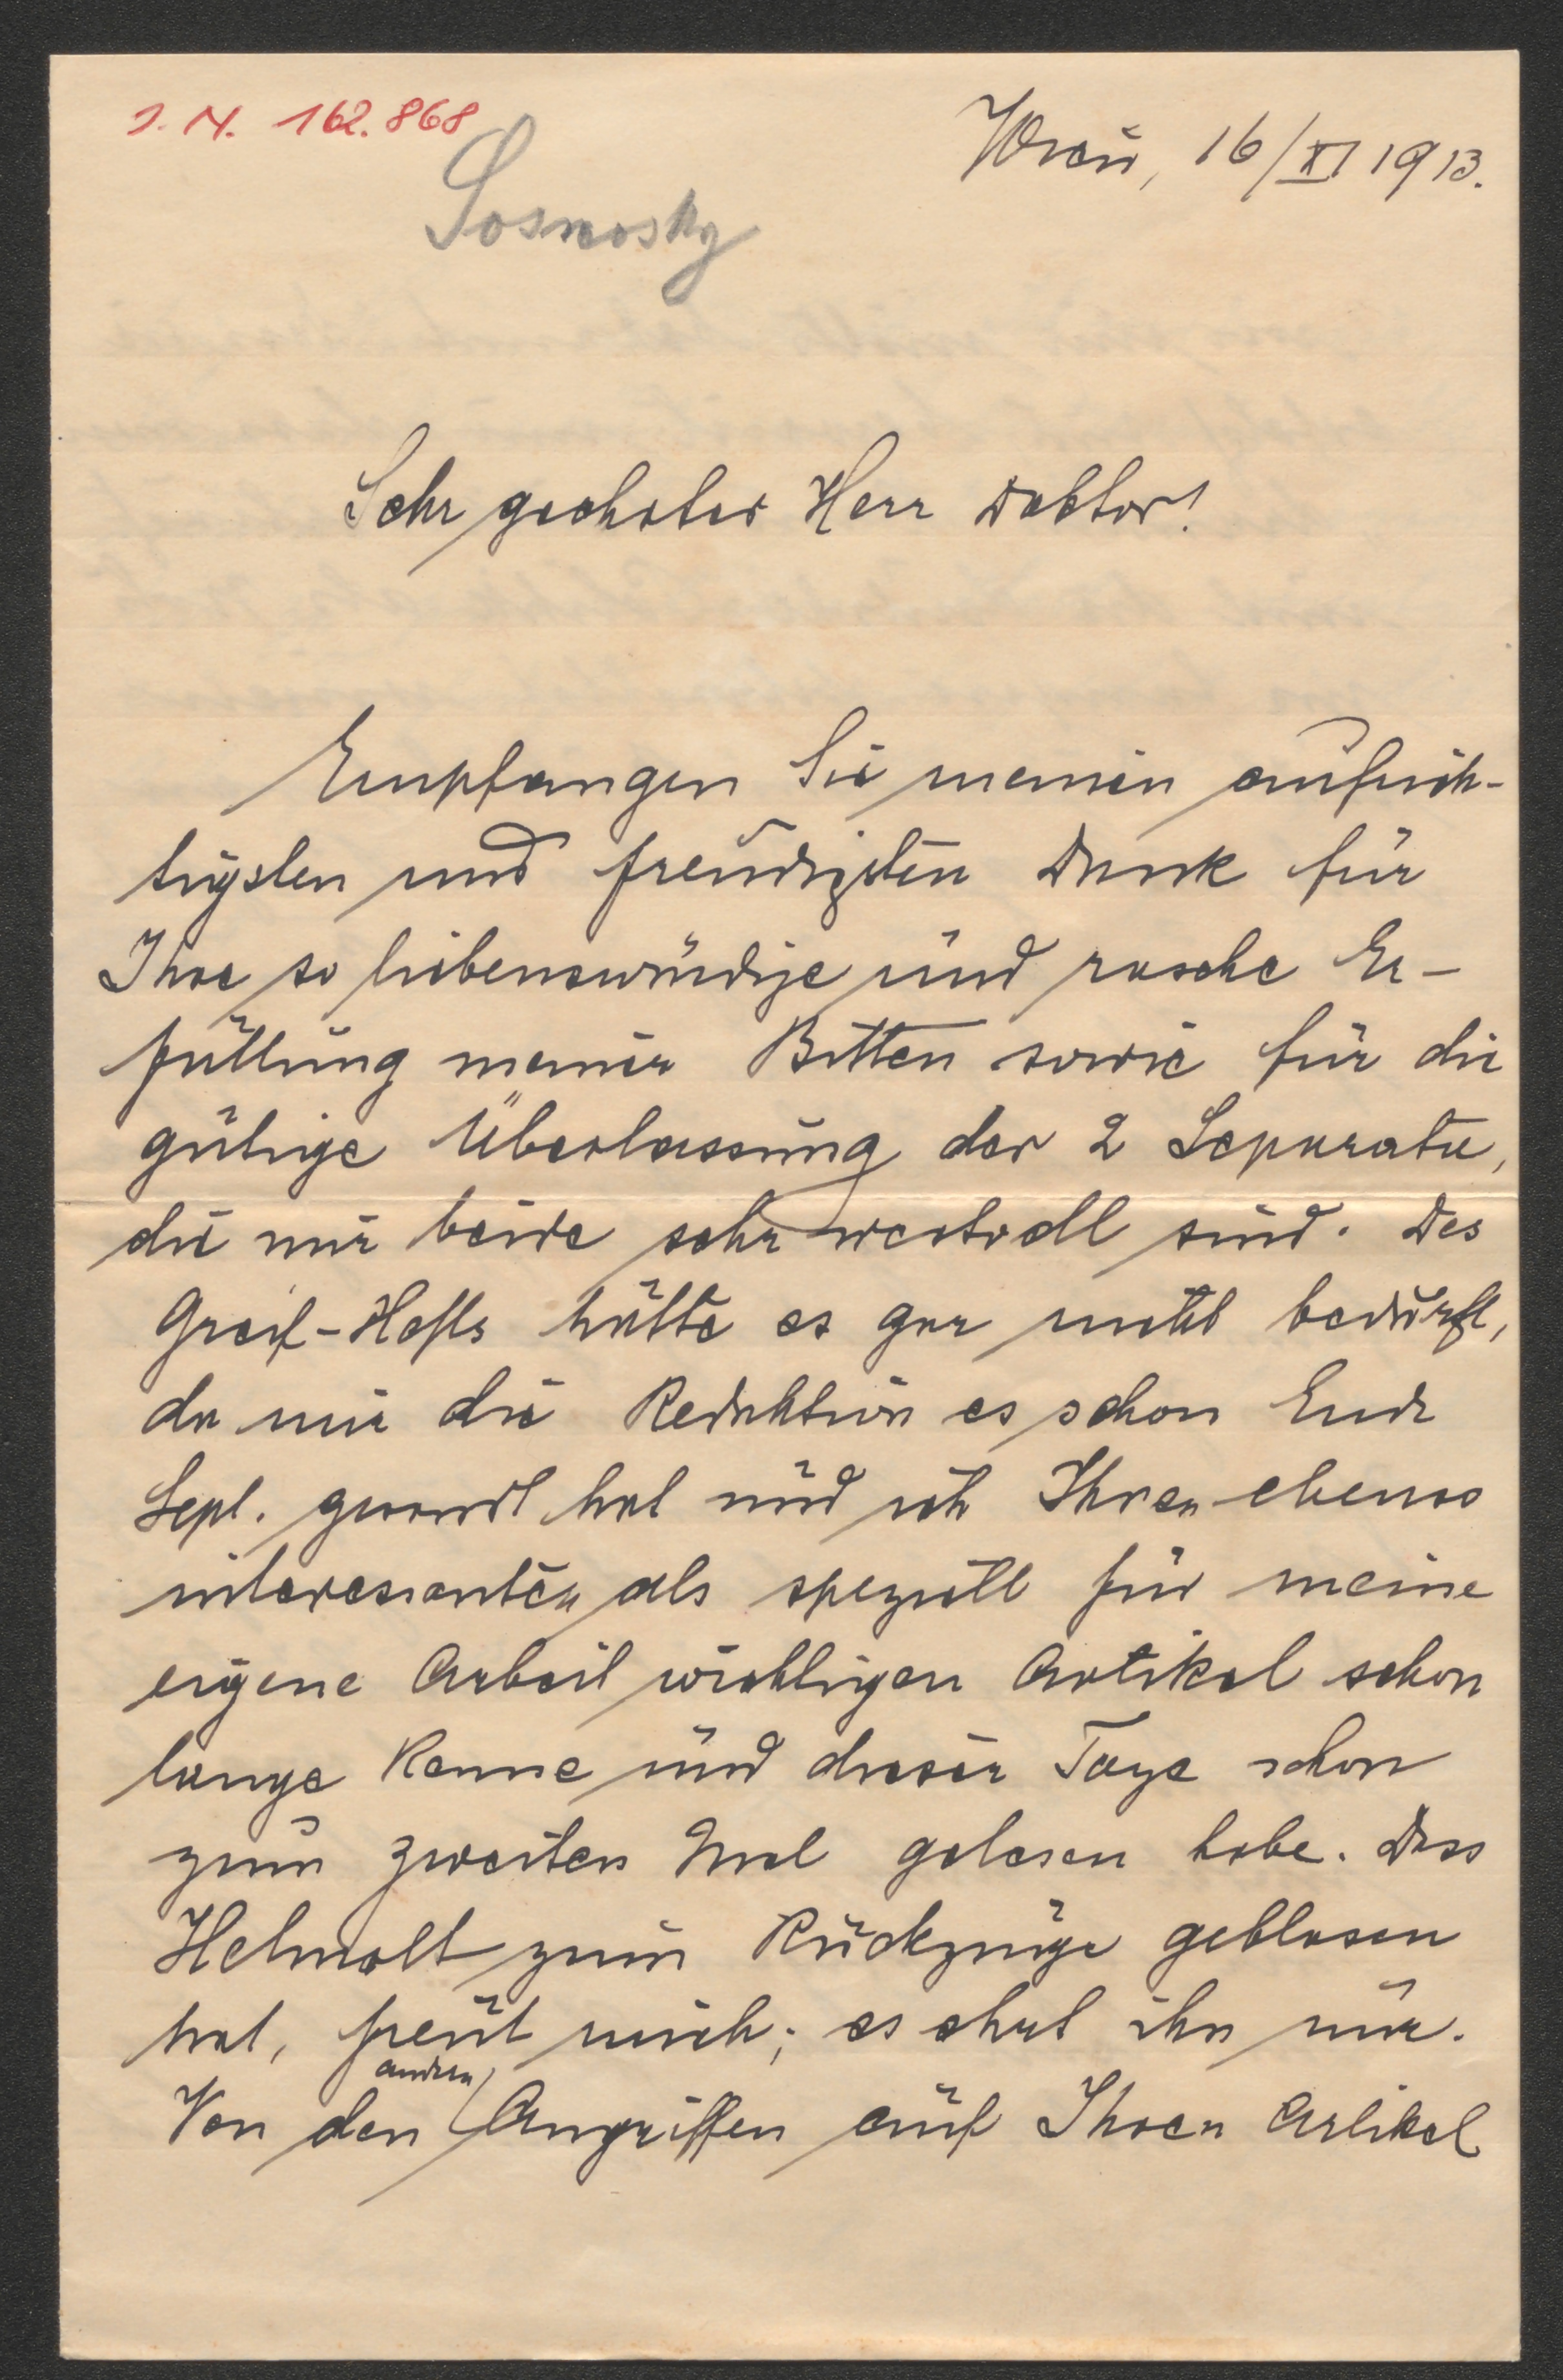 J. N. 162.868
Wien, 16/XI 1913.
Sosnosky
Sehr geehrter Herr Doktor!
Empfangen Sie meinen aufrich-
tigsten und freudigsten Dank für
Ihre so liebenswürdige und rasche Er-
füllung meiner Bitten sowie für die
gütige Überlassung der 2 Separata,
die mir beide sehr wertvoll sind. Des
Greif-Hefts hätte es gar nicht bedurft,
da mir die Redaktion es schon Ende
Sept. gesandt hat und ich Ihren ebenso
interessanten als speziell für meine
eigene Arbeit wichtigen Artikel schon
lange kenne und dieser Tage schon
zum zweiten Mal gelesen habe. Dass
Helmolt zum Rückzuge geblasen
hat, freut mich; es ehrt ihn nur.
Von den andern Angriffen auf Ihren Artikel